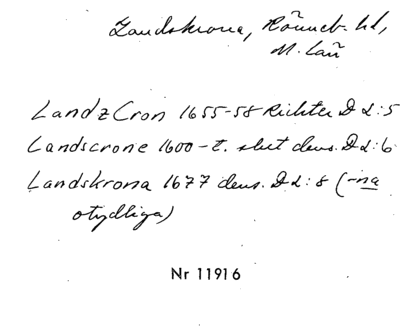 Landskrona, Rönneb. hd,
M. län
LandzCron 1655-58 Richter D 2:5
Landscrone 1600-t. slut dens. D 2:6
Landskrona 1677 dens. D 2:8 (-na
otydliga)
Nr 11916